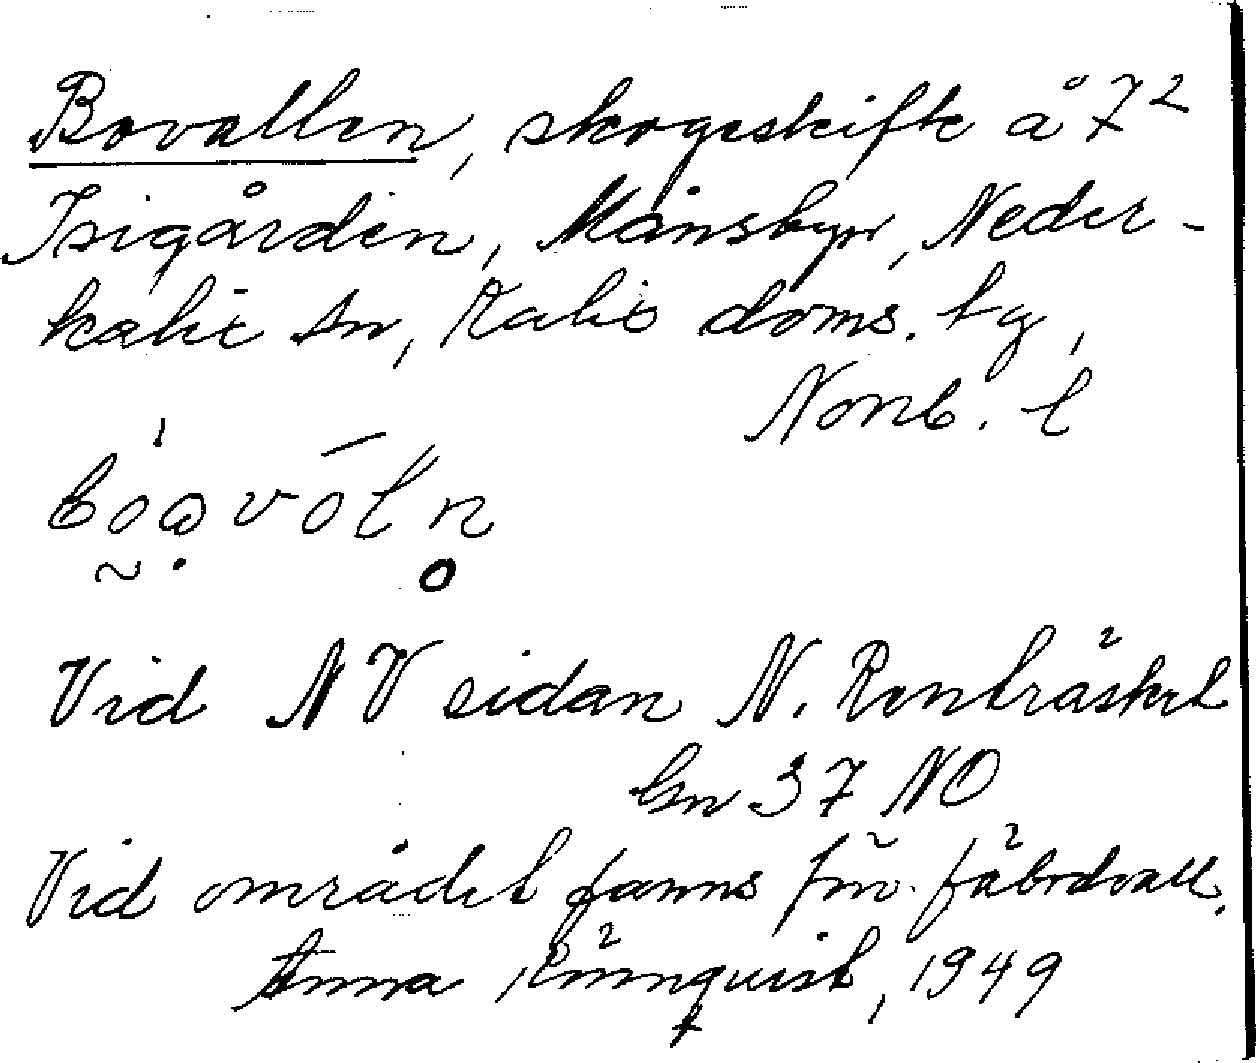 Bovallen, skogsskifte å 7²
Isigården, Månsbyn, Neder-
kalix sn, Kalix doms. tg,
Norrb. l
Vid NV sidan N. Renträsket
bn 37 NO
Vid området fanns förr fäbodvall.
Anna Rönnqvist, 1949